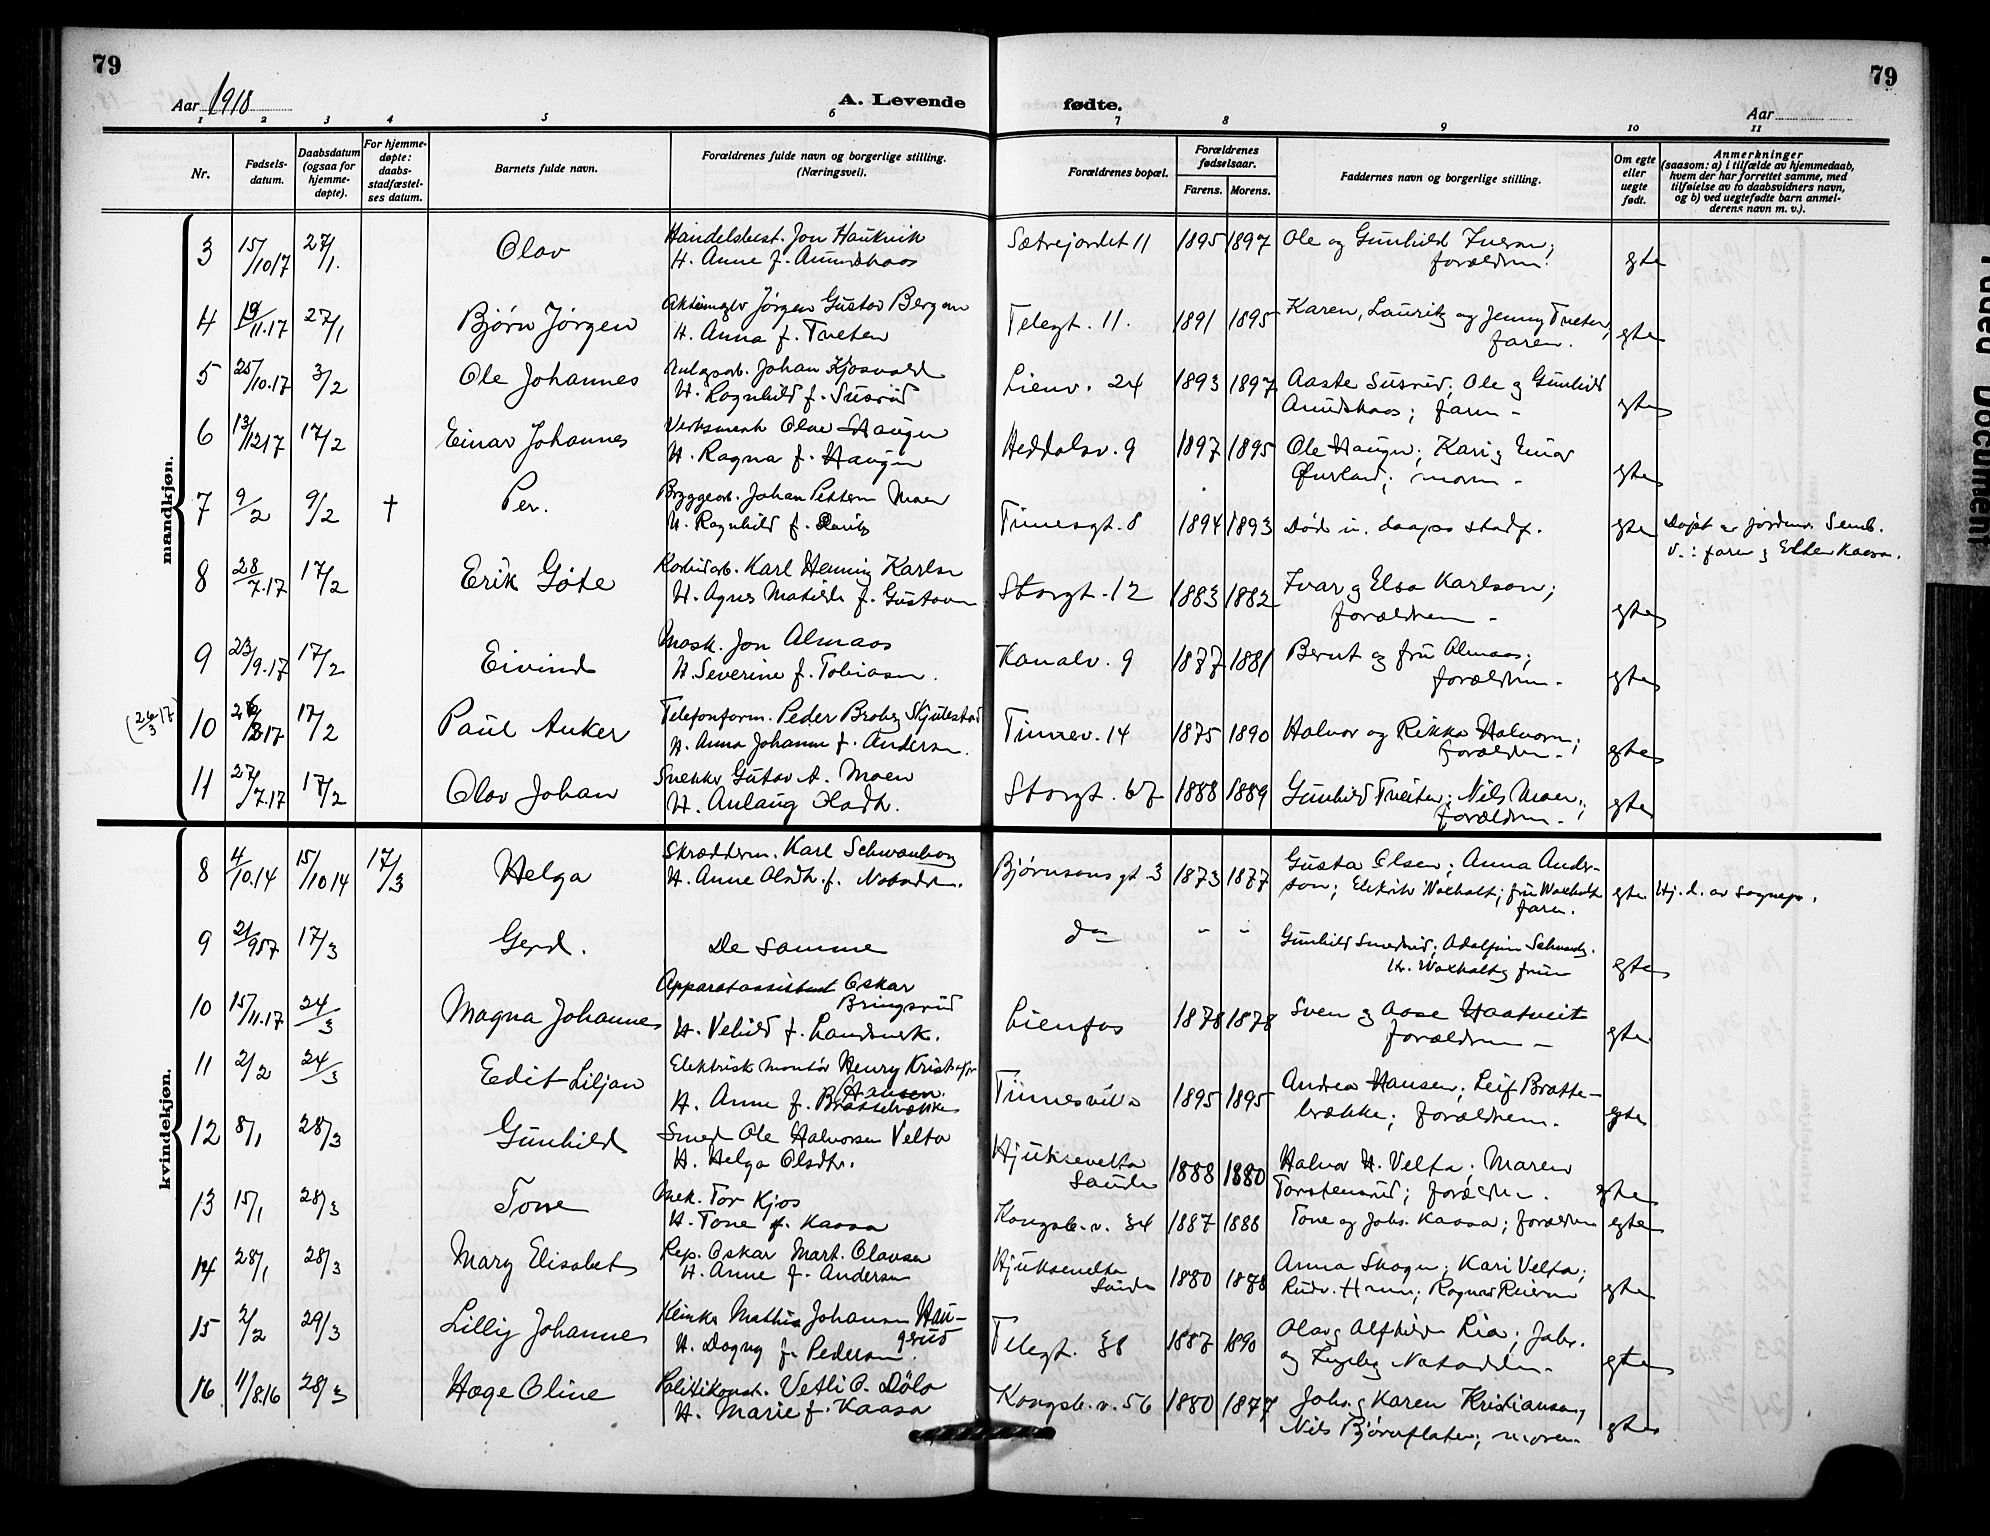 79
79
Aar 1918
A. Levende fødte.
Aar
1 2 3 4 5 6 7 8 9 10 11
Nr.
Fødselsdatum.
Daabsdatum (ogsaa for hjemmedøpte).
For hjemmedøpte: daabsstadfæstelses datum.
Barnets fulde navn.
Forældrenes fulde navn og borgerlige stilling. (Næringsvei).
Forældrenes bopæl.
Forældrenes fødselsaar.
Farens. Morens.
Faddernes navn og borgerlige stilling.
Om egte eller uegte født.
Anmerkninger
(saasom: a) i tilfælde av hjemmedaab,
hvem der har forrettet samme, med
tilføielse av to daabsvidners navn,
og b) ved uegtefødte barn anmelderens navn m. v.).
mandkjøn.
3 15/10 17 27/1. Olav Handelsbest. Jon Haukvik Sætrejordet 11 1895 1897 Ole og Gunhild
H. Anne f. Amundhaas forældrene. egte
4 19/11.17 27/1 Bjørn Jørgen Jørgen Gustav Bergan Telegt. 11. 1891 1895 Karen, Lauritz og Jenny Tveten,
H. Anna f. Tveten faren. egte
5 25/10.17 3/2 Ole Johannes Johan Kjosvold Lienv. 24 1893 1897 Aaste Susrud; Ole g Gunhild
H. Ragnhild f. Susrud Amundhaas; faren - egte
6 13/12 17 17/2 Einar Johannes Olav Haugen Heddalsv. 9 1897 1895 Ole Haugen; Kari g Einar
H. Ragna f. Haugen moren - egte
7 9/2 9/2 † Per. Bryggearb. Johan Pettersen Moen Tinnesgt. 8 1894 1893 Død u. daaps stadf. egte Døpt av jordm. Semb.
H. Ragnhild f. V.: faren g Ellen Kaasa.
8 28/7.17 17/2 Erik Göte Karl Henning Karlsen Storgt. 12 1883 1882 Ivar g Elsa Karlson;
H. Agnes Matilde f. Gustavsen forældrene - egte
9 23/9.17 17/2 Eivind Mask. Jon Almaas Kanalv. 9 1877 1881 Bernt og fru Almaas;
H. Severine f. Tobiasen. forældrene - egte
(26/3 17) 10 17/2 Paul Anker Telefonform. Peder Broberg Skjulestad Tinnev. 14 1875 1890 Halvor og Rikka Halvorsen;
H. Anna Johanne f. Andersen. forældrene - egte
11 27/7.17 17/2 Olav Johan Snekker Gustav A. Moen Storgt. 67 1888 1889 Gunhild Tveiten; Nils Moen;
H. Aulaug Olsdtr. forældrene - egte
kvindekjøn.
8 4/10.14 15/10 14 17/3 Helga Skrædderm. Karl Schwanborg Bjørnsons gt 3 1873 1877 Gusta Olsen; Anna Anderson;
H. Anne Olsdtr. f. Notodden. Waxholt; fru Waxholt egte Hj. d. av sognepr.
faren.
9 17/3 Gerd. De samme do - - Gunhild
Waxholt g fruen egte
10 15/11.17 24/3 Magna Johannes Apparatassistent Oskar
Bringsrud Lienfos 1878 1878 Sven g Aase Haatveit
H. Vehild f. Landsverk. forældrene - egte
11 2/2 24/3 Edit Liljan Elektrisk montør Henry Kristoffer
Hansen. Tinnesvilla 1895 1895 Andrea Hansen; Leif Brattebrække;
H. Anne f. Brattebrække forældrene. egte
12 8/1 28/3 Gunhild Smed Ole Halvorsen Velta Hjuksevelta
Saude 1888 1880 Halvor H. Velta; Maren
H. Helga Olsdtr. Torstensrud; forældrene. egte
13 15/1 28/3 Tone Mek. Tor Kjos Kongsb. v. 34 1887 1888 Tone og Johs. Kaasa; forældrene egte
H. Tone f. Kaasa
14 28/1 28/3 Mary Elisabet Rep. Oskar Mart. Olavsen Hjuksevelta
Saude 1880 1878 Anna Skogen; Kari Velta;
H. Anne f. Andersen Rudv. Ragna egte
15 2/2 29/3 Lilly Johanne Mathis Johansen Haugerud Telegt. 38 1887 1890 Olav g Alfhild Lia; Johs.
H. Dagny f. Pedersen. og Notodden. egte
16 11/8.16 28/3 Hæge Oline Politikonst. Vetli O. Dølo Kongsb. v. 56 1880 1877 Johs. g Karen Kristiansen;
H. Marie f. Kaasa Nils Bjørnflaten; moren - egte